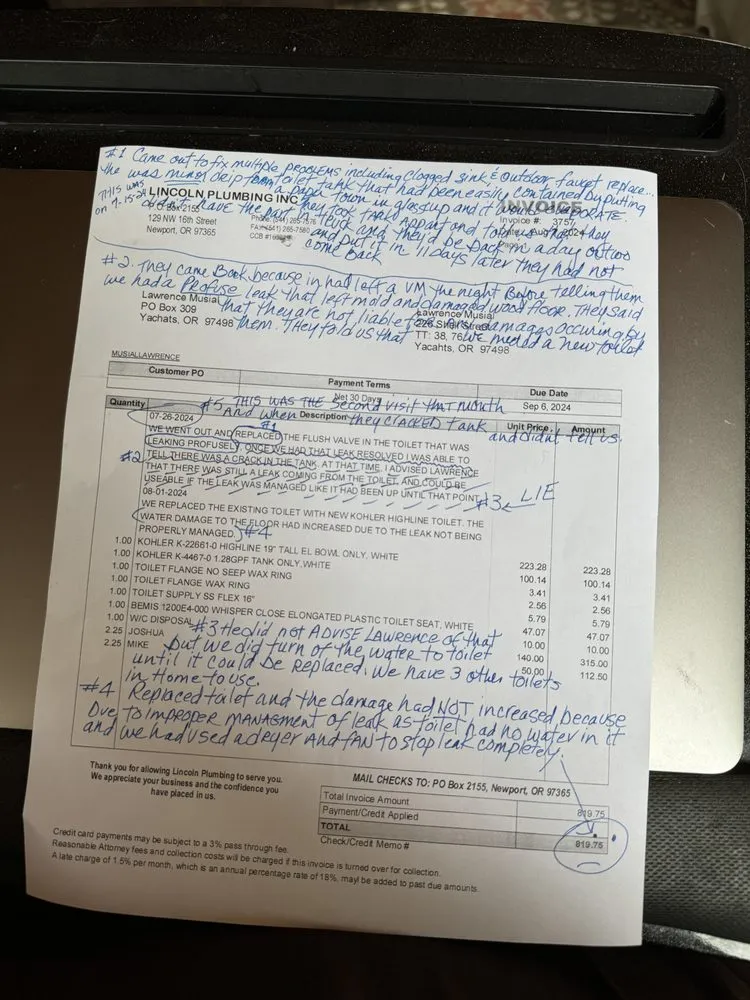 #1 Came out to fix multiple problems including clogged sink & outdoor faucet replace...
the was minor drip from toilet tank that had been easily contained by putting
THIS WAS on 7-15-24
a paper towel in glass cup and it would evaporate.
They took tank apart and told us that they
didn't have the part in truck and they'd be back in a day or two
and put it in 11 Days later they had not
come back
LINCOLN PLUMBING INC
P.O. Box 2155
129 NW 16th Street
Newport, OR 97365
Phone: (541) 265-7576
FAX: (541) 265-7580
CCB #
INVOICE
Invoice #: 3757
2024
#2. They came Back, because in had left a VM the night Before telling them
we had a PROFUSE leak that left mold and damaged wood floor. THEY said
that they are not liable for damages occuring by
them. THEY told us that we needed a new toilet
Lawrence Musial
PO Box 309
Yachats, OR 97498
Lawrence Musial
TT: 38, 76
Yacahts, OR 97498
MUSIALLAWRENCE
Customer PO
Payment Terms
Due Date
Net 30 Days
Sep 6, 2024
#5 THIS WAS THE second visit that month
And when they CRACKED tank and didn't tell us.
Quantity
Description
Unit Price
Amount
07-26-2024
#1
WE WENT OUT AND REPLACED THE FLUSH VALVE IN THE TOILET THAT WAS
LEAKING PROFUSELY. ONCE WE HAD THAT LEAK RESOLVED I WAS ABLE TO
#2 TELL THERE WAS A CRACK IN THE TANK. AT THAT TIME, I ADVISED LAWRENCE
THAT THERE WAS STILL A LEAK COMING FROM THE TOILET, AND COULD BE
USEABLE IF THE LEAK WAS MANAGED LIKE IT HAD BEEN UP UNTIL THAT POINT. #3 ← LIE
08-01-2024
WE REPLACED THE EXISTING TOILET WITH NEW KOHLER HIGHLINE TOILET. THE
WATER DAMAGE TO THE FLOOR HAD INCREASED DUE TO THE LEAK NOT BEING
PROPERLY MANAGED. #4
1.00 KOHLER K-22661-0 HIGHLINE 19" TALL EL BOWL ONLY, WHITE 223.28 223.28
1.00 KOHLER K-4467-0 1.28GPF TANK ONLY, WHITE 100.14 100.14
1.00 TOILET FLANGE NO SEEP WAX RING 3.41 3.41
1.00 TOILET FLANGE WAX RING 2.56 2.56
1.00 TOILET SUPPLY SS FLEX 16" 5.79 5.79
1.00 BEMIS 1200E4-000 WHISPER CLOSE ELONGATED PLASTIC TOILET SEAT, WHITE 47.07 47.07
1.00 W/C DISPOSAL 10.00 10.00
2.25 JOSHUA 140.00 315.00
2.25 MIKE 50.00 112.50
#3 He did not ADVISE LAWRENCE of that
but we did turn of the water to toilet
until it could be Replaced. We have 3 other toilets
in Home to use.
#4 Replaced toilet and the damage had NOT increased, because
Due to IMPROPER MANAGMENT of leak as toilet had no water in it
and we had used a dryer AND FAN to stop leak completely.
Thank you for allowing Lincoln Plumbing to serve you.
We appreciate your business and the confidence you
have placed in us.
MAIL CHECKS TO: PO Box 2155, Newport, OR 97365
Total Invoice Amount 819.75
Payment/Credit Applied
TOTAL 819.75
Check/Credit Memo #
Credit card payments may be subject to a 3% pass through fee.
Reasonable Attorney fees and collection costs will be charged if this invoice is turned over for collection.
A late charge of 1.5% per month, which is an annual percentage rate of 18%, mayl be added to past due amounts.